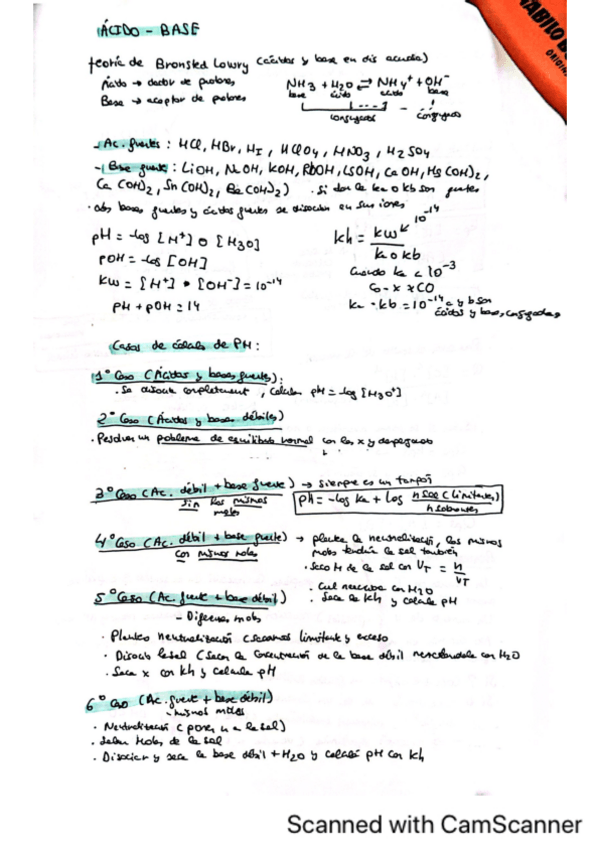 ÁCIDO - BASE
teoría de Bronsted Lowry (ácidos y base en dis acuosa)
Ácido → dador de protones
Base → aceptor de protones
NH3 + H2O ⇄ NH4+ + OH-
base ácido ácido base
conjugados - conjugados
- Ac. fuertes: HCl, HBr, HI, HClO4, HNO3, H2SO4
- Base fuerte: LiOH, NaOH, KOH, RbOH, CsOH, CaOH, Mg(OH)2,
Ca(OH)2, Sn(OH)2, Ba(OH)2) . Si dan la ka o kb son fuertes
bases fuertes y ácidos fuertes se disocian en sus iones
pH = -log [H+] o [H3O]
pOH = -log [OH]
Kw = [H+] • [OH-] = 10-14
pH + pOH = 14
10-14
kh = kw
ka o kb
Cuando ka < 10-3
Co - x ≈ Co
ka · kb = 10-14 a y b son
ácidos y bases conjugadas
Casos de cálculo de PH:
1º Caso (Ácidos y bases fuertes):
. Se disocia completamente, calcular pH = -log [H3O+]
2º Caso (Ácidos y bases débiles)
. Resolver un problema de equilibrio normal con las x y despejando
3º Caso (Ac. débil + base fuerte) → siempre es un tampón
Sin los mismos
moles
PH = -log ka + log n sal (limitante)
n sobrantes
4º Caso (Ac. débil + base fuerte) → plantea la neutralización, los mismos
con mismos moles
mols tendrá la sal también
. Saco M de la sal con VT = n
VT
reacciona con H2O
. Saca la Kh y calcula pH
5º Caso (Ac. fuert + base débil)
- Diferentes mols
. Planteo neutralización (sacamos limitante y exceso
. Disocio la sal (Saco la concentración de la base débil mezclandola con H2O
. Saca x con kh y calcula pH
6º Caso (Ac. fuert + base débil)
- mismos moles
. Neutralización (pones n a la sal)
. Saber Mols de la sal
. Disociar y saca la base débil + H2O y calcula pH con kh
Scanned with CamScanner